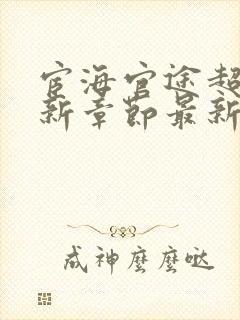 宦海官途超
新章節最新
成神麼麼噠